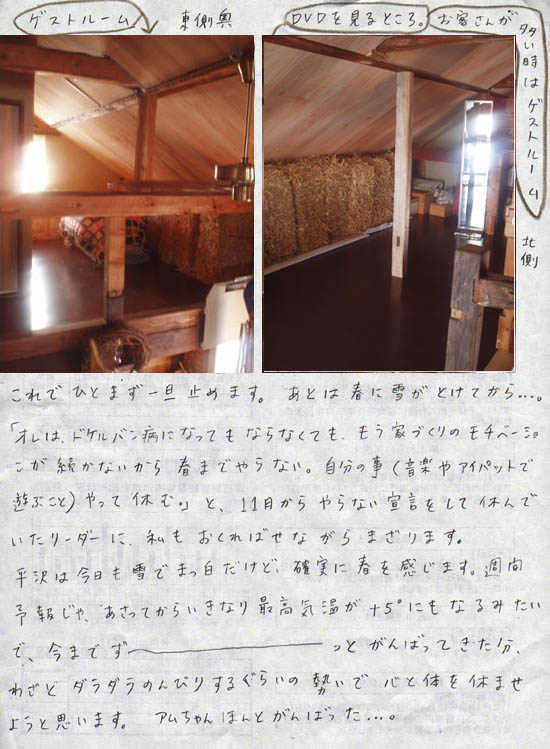 ゲストルーム 東側奥
DVDを見るところ。お客さんが
多い時はゲストルーム
北側
これでひとまず一旦止めます。 あとは春に雪がとけてから…。
「オレは、ドケルバン病になってもならなくても、もう家づくりのモチベーショ
こが続かないから春までやらない。自分の事(音楽やアイパットで
遊ぶこと)やって休む。」と、11月からやらない宣言をして休んで
いたリーダーに、私もおくればせながらまざります。
平沢は今日も雪でまっ白だけど、確実に春を感じます。週間
予報じゃ、あさってからいきなり最高気温が+5°にもなるみたい
で、今までず────っとがんばってきた分、
わざとダラダラのんびりするぐらいの勢いで心と体を休ませ
ようと思います。 アムちゃんほんとがんばった…。